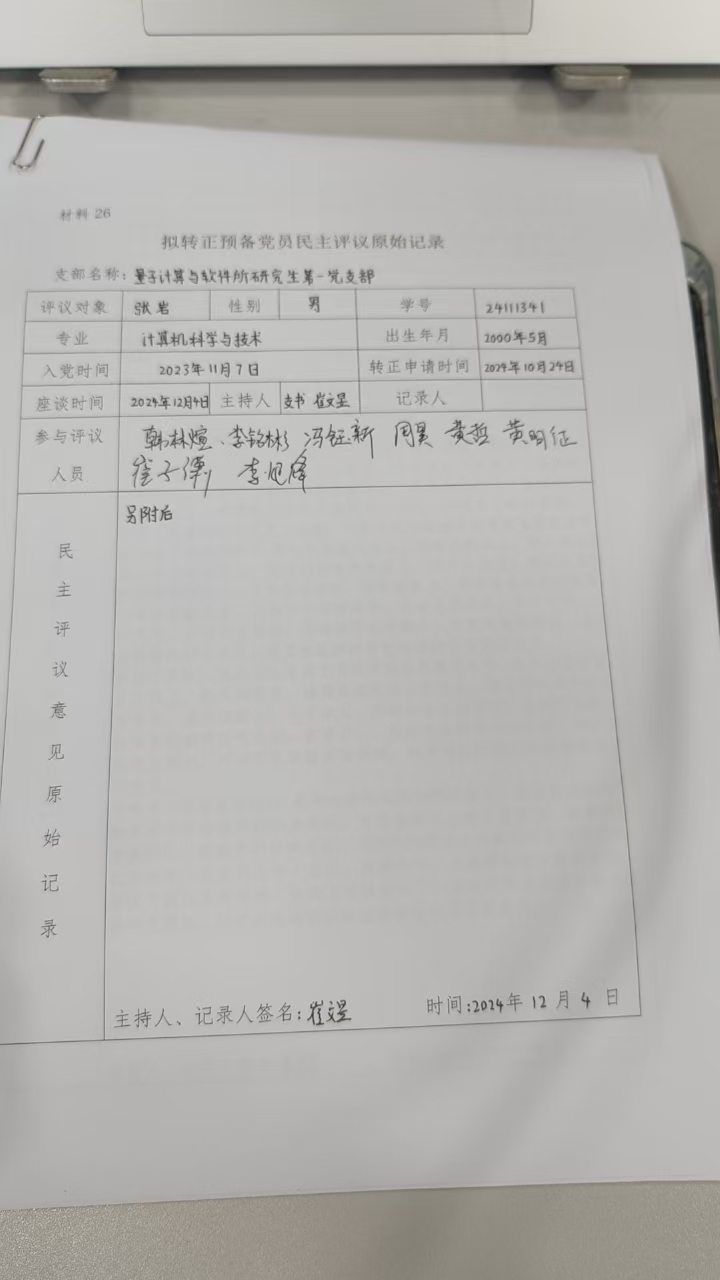 材料 26
拟转正预备党员民主评议原始记录
支部名称：量子计算与软件所研究生第一党支部
评议对象 张岩 性别 男 学号 24111341
专业 计算机科学与技术 出生年月 2000年5月
入党时间 2023年11月7日 转正申请时间 2024年10月24日
座谈时间 2024年12月4日 主持人 支书 崔文昱 记录人
参与评议 韩林煊、李铭彬 冯钰新 周昊 黄哲 黄明征
人员 崔子 李旭峰
另附后
民
主
评
议
意
见
原
始
记
录
主持人、记录人签名：崔文昱 时间：2024年 12 月 4 日